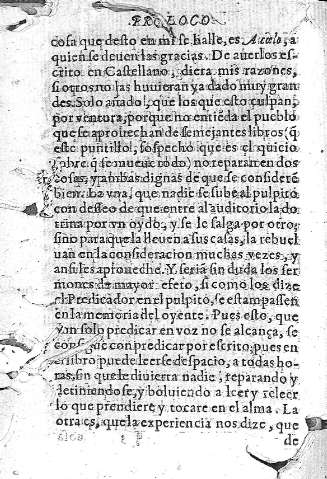 PROLOGO.
cosa que desto en mi se halle, es A cielo, a
quien se deuen las gracias. De auerlos es-
crito en Castellano, diera mis razones,
si otros no las huuieran ya dado muy gran
des. Solo añado, que los que esto culpan,
por ventura, porque no entiēda el pueblo
que se aprouechan de semejantes libros (q̄
este puntillo, sospecho que es el quicio
sobre q̄ se mueue todo) no reparan en dos
cosas, y ambas dignas de que se considerē
bien. La vna, que nadie se sube al pulpito
con desseo de que entre al auditorio la do
trina por vn oydo, y se le salga por otro,
sino para que la lleuen a sus casas, la rebuel
uan en la consideracion muchas vezes, y
ansi les aprouehe. Y seria sin duda los ser
mones de mayor efeto, si como los dize
el Predicador en el pulpito, se estampassen
en la memoria del oyente. Pues esto, que
con solo predicar en voz no se alcança, se
con predicar por escrito, pues en
el libro puede leerse despacio, a todas ho-
ras, sin que le diuierta nadie, reparando y
deteniendose, y boluiendo a leer y releer
lo que prendiere y tocare en el alma. La
otra es, que la experiencia nos dize, que
de